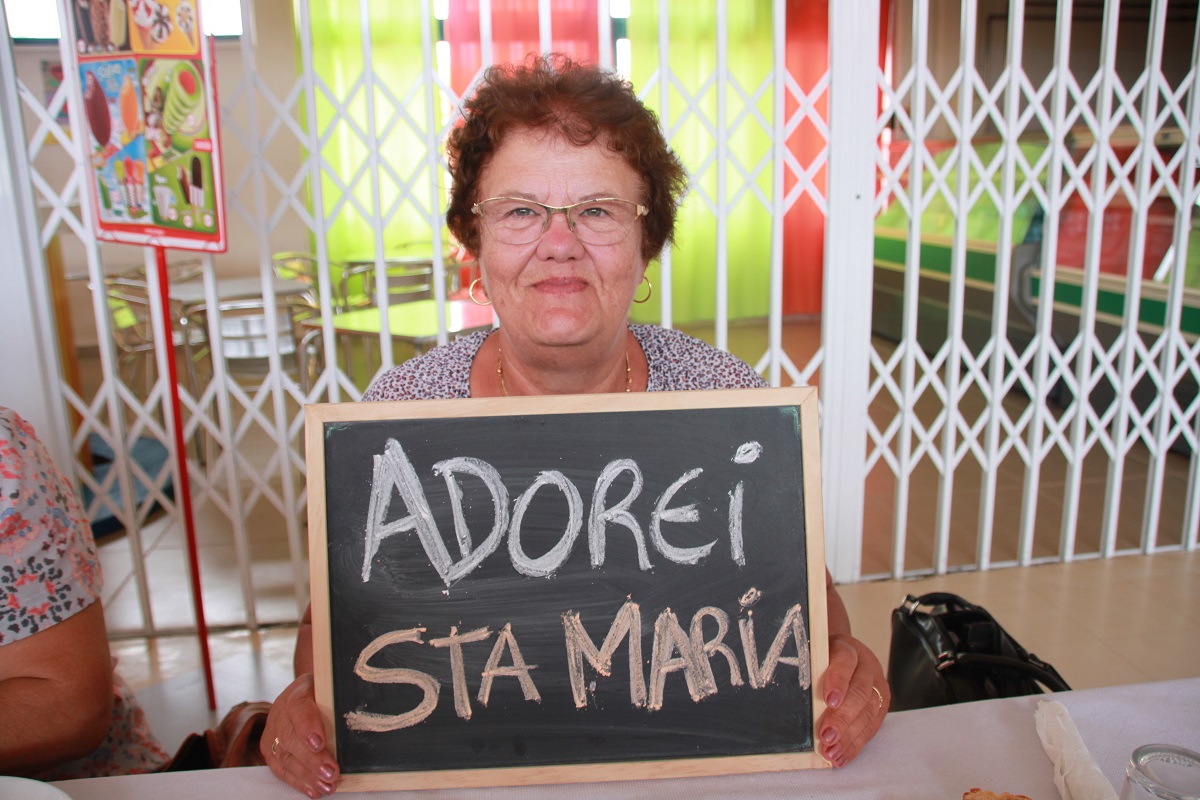 ADOREi
STA MARiA